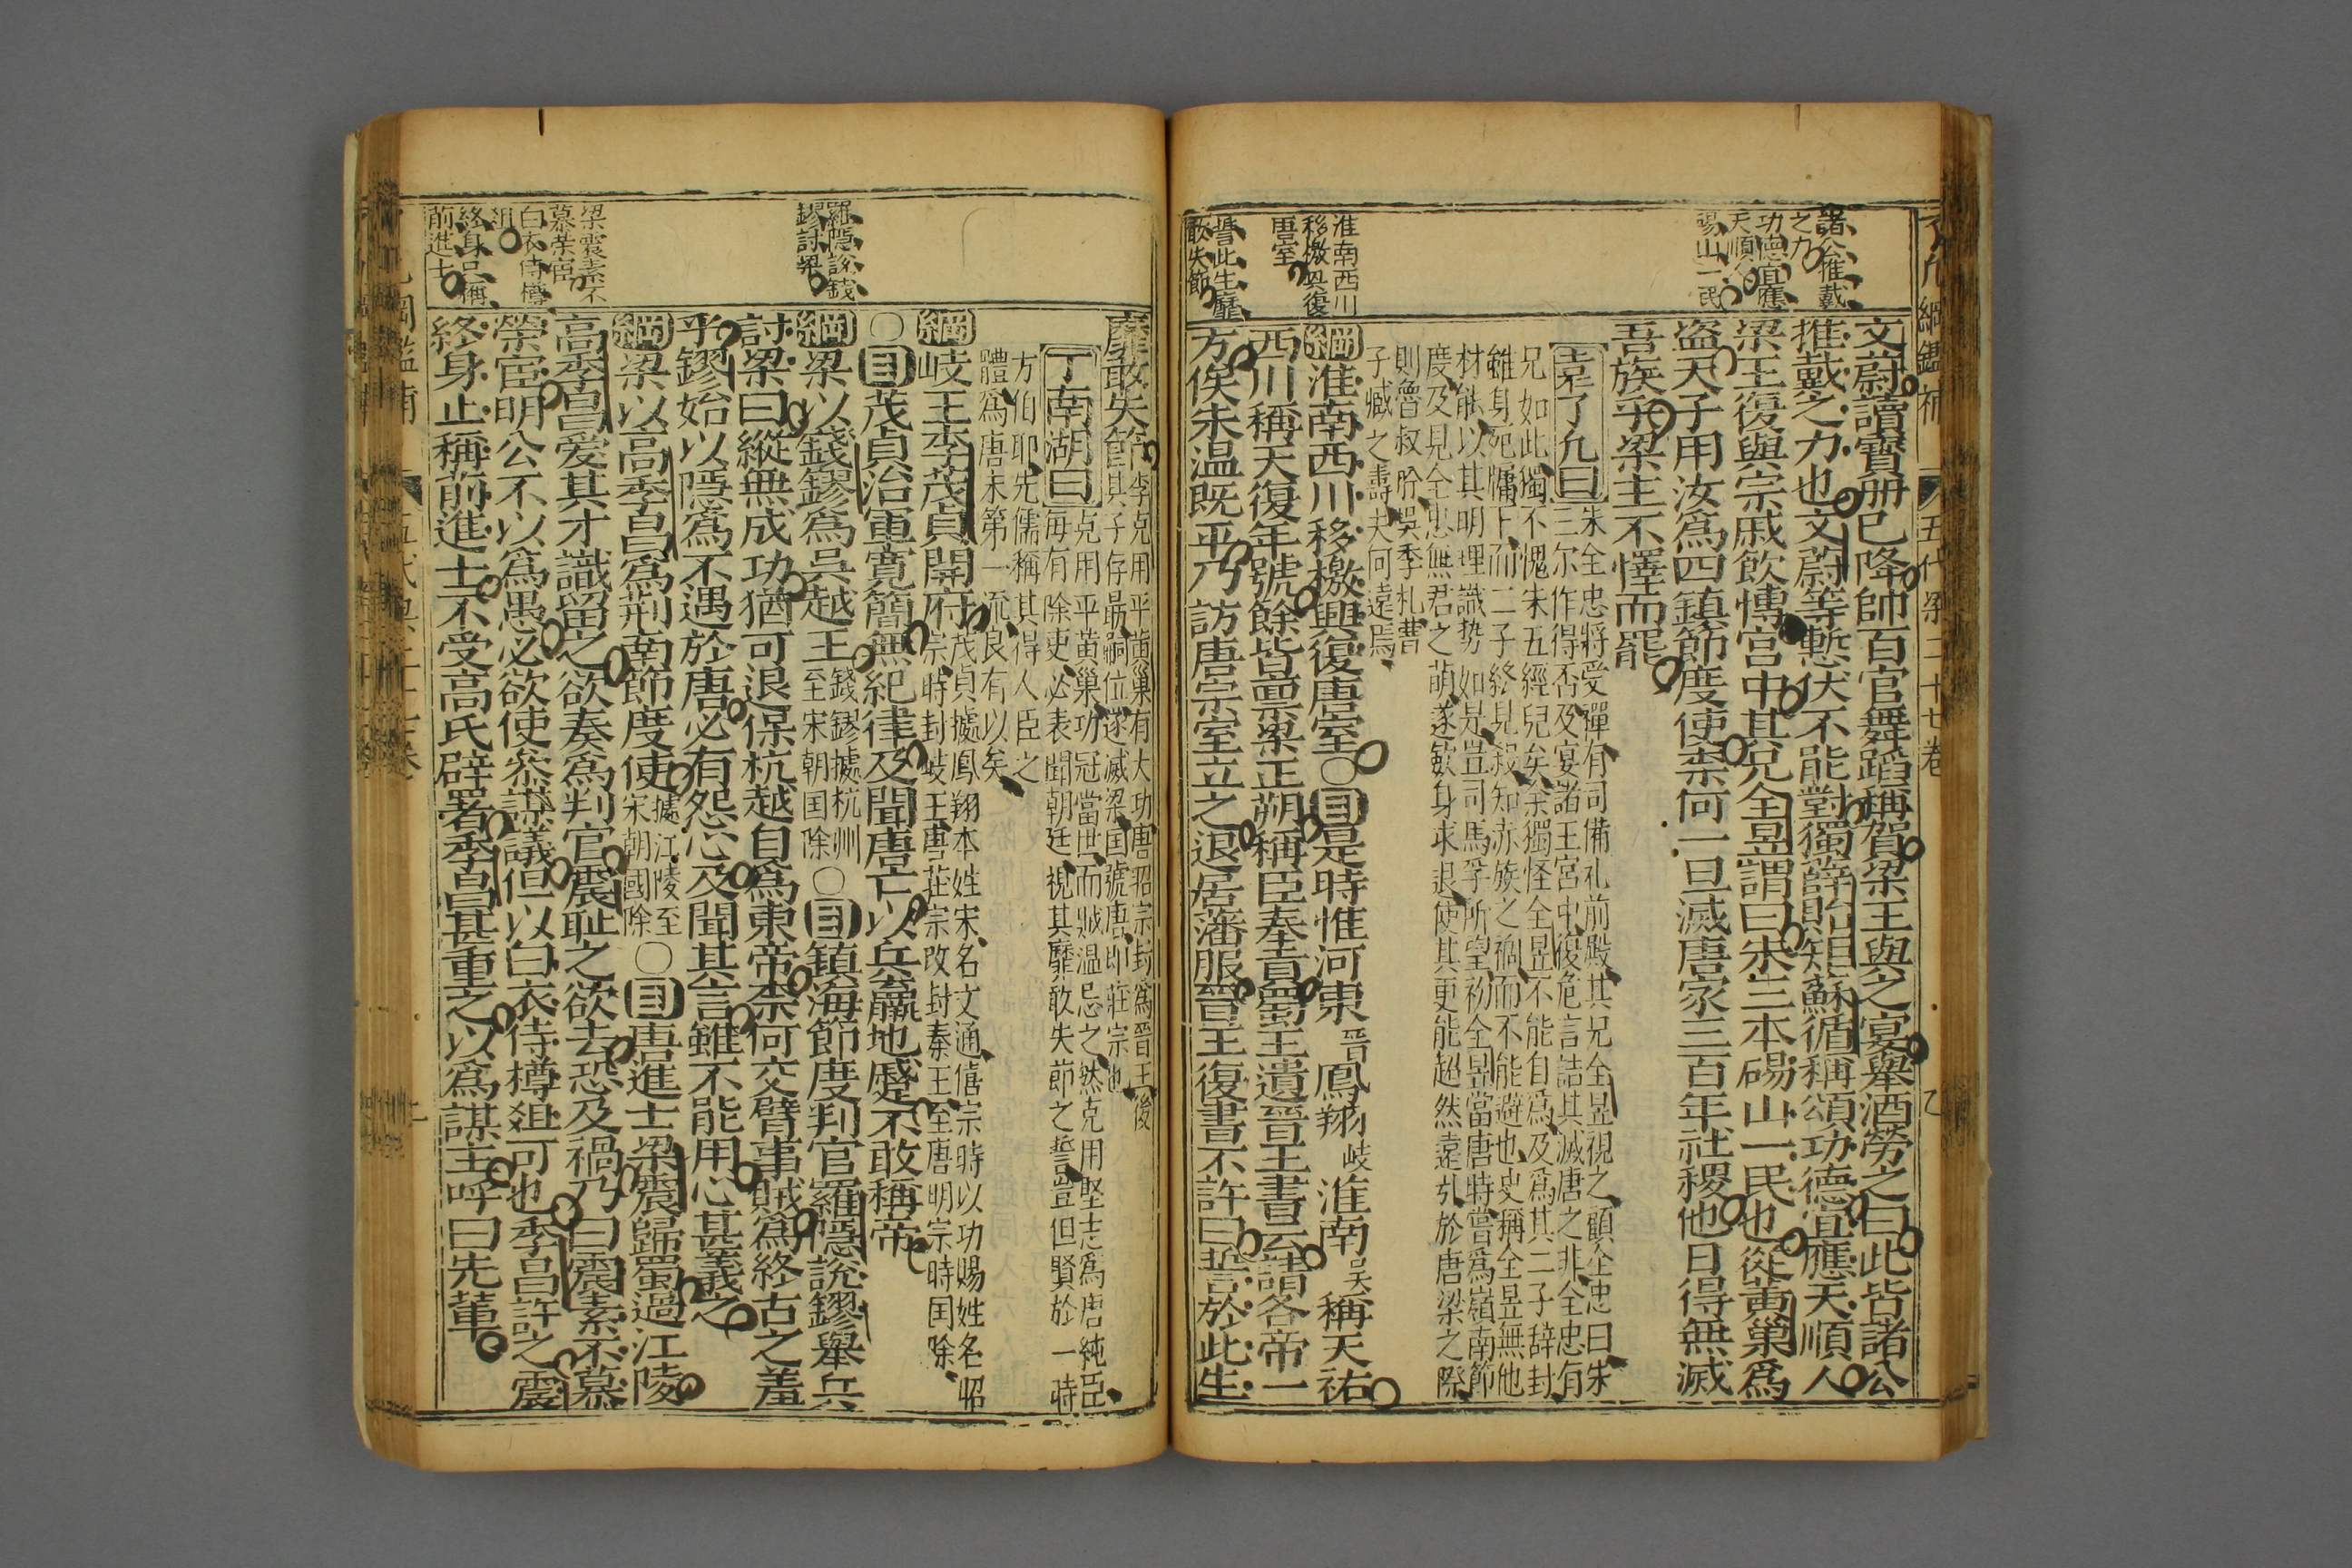 諸公推戴
之力
功德宜應
天順人
碭山一民
淮南西川
移檄興復
唐室
誓此生靡
敢失節
文蔚讀寶册已降帥百官舞蹈稱賀梁王與之宴舉酒勞之曰此皆諸公
推戴之力也文蔚等慙伏不能對獨薛貽矩蘇循稱頌功德宜應天順人
梁王復與宗戚飲愽宮中其兄全昱謂曰朱三本碭山一民也從黃巢爲
盗天子用汝爲四鎮節度使柰何一旦滅唐家三百年社稷他日得無滅
吾族乎梁主不懌而罷
袁了凢曰
朱全忠將受禪有司備礼前殿其兄全昱視之顧全忠曰朱
三尔作得否及宴諸王宮中復危言詰其滅唐之非全忠有
兄如此獨不愧朱五經兒矣余獨怪全昱不能自爲及爲其二子辞封
雖身死牖下而二子終見殺知赤族之禍而不能避也史稱全昱無他
材能以其明理識势如是豈司馬孚所望初全昱當唐時嘗爲嶺南節
度及見全忠無君之萌遂歛身求退使其更能超然遠引於唐梁之際
則魯叔肹吳季札曹
子臧之壽夫何遠焉
綱淮南西川移檄興復唐室○目是時惟河東晉鳳翔岐淮南吳稱天祐
西川稱天復年號餘皆禀梁正朔稱臣奉貢蜀王遺晉王書云請各帝一
方俟朱温既平乃訪唐宗室立之退居藩服晉王復書不許曰誓於此生
靡敢失節
李克用平黃巢有大功唐昭宗封爲晉王後
其子存勗嗣位遂滅梁国號唐即莊宗也
丁南湖曰
克用平黃巢功冠當世而贓温忌之然克用堅志爲唐純臣
每有除吏必表聞朝廷視其靡敢失節之誓豈但賢於一時
方伯耶先儒稱其得人臣之
體爲唐末第一流良有以矣
綱岐王李茂貞開府
茂貞據鳳翔本姓宋名文通僖宗時以功賜姓名昭
宗時封岐王唐莊宗改封秦王至唐明宗時国除
○目茂貞治軍寛簡無紀律及聞唐亡以兵羸地蹙不敢稱帝
綱梁以錢鏐爲吳越王
錢鏐據杭州
至宋朝国除
○目鎮海節度判官羅隱說鏐舉兵
討梁曰縱無成功猶可退保杭越自爲東帝柰何交臂事賊爲終古之羞
乎鏐始以隱爲不遇於唐必有怨心及聞其言雖不能用心甚義之
綱梁以高季昌爲荊南節度使
據江陵至
宋朝國除
○目唐進士梁震歸蜀過江陵
高季昌愛其才識留之欲奏爲判官震耻之欲去恐及禍乃曰震素不慕
榮宦明公不以爲愚必欲使參謀議但以白衣侍樽俎可也季昌許之震
終身止稱前進士不受高氏辟署季昌甚重之以爲謀主呼曰先軰
羅隱說錢
鏐討梁
梁震素不
慕榮宦
白衣侍樽
俎
終身只稱
前進士
五代梁二十七卷